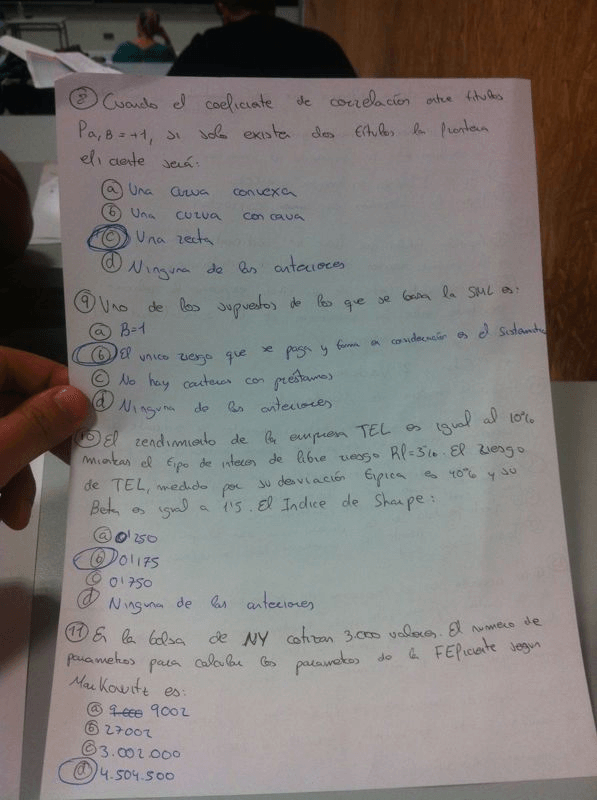 ⑧ Cuando el coeficiente de correlación entre titulos
Pa,B = +1, si solo existen dos titulos la frontera
eficiente será:
ⓐ Una curva convexa
ⓑ Una curva concava
ⓒ Una recta
ⓓ Ninguna de las anteriores
⑨ Uno de los supuestos de los que se basa la SML es:
ⓐ B=1
ⓑ El unico riesgo que se paga y toma en consideración es el sistematico
ⓒ No hay carteras con préstamos
ⓓ Ninguna de las anteriores
⑩ El rendimiento de la empresa TEL es igual al 10%
mientras el tipo de interes de libre riesgo Rf=3%. El riesgo
de TEL, medido por su desviación tipica es 40% y su
Beta es igual a 1'5. El Indice de Sharpe:
ⓐ 0'250
ⓑ 0'175
ⓒ 0'750
ⓓ Ninguna de las anteriores
⑪ En la bolsa de NY cotizan 3.000 valores. El numero de
parametros para calcular los parametros de la FEficiente segun
Markowitz es:
ⓐ 9.000 9002
ⓑ 27002
ⓒ 3.002.000
ⓓ 4.504.500